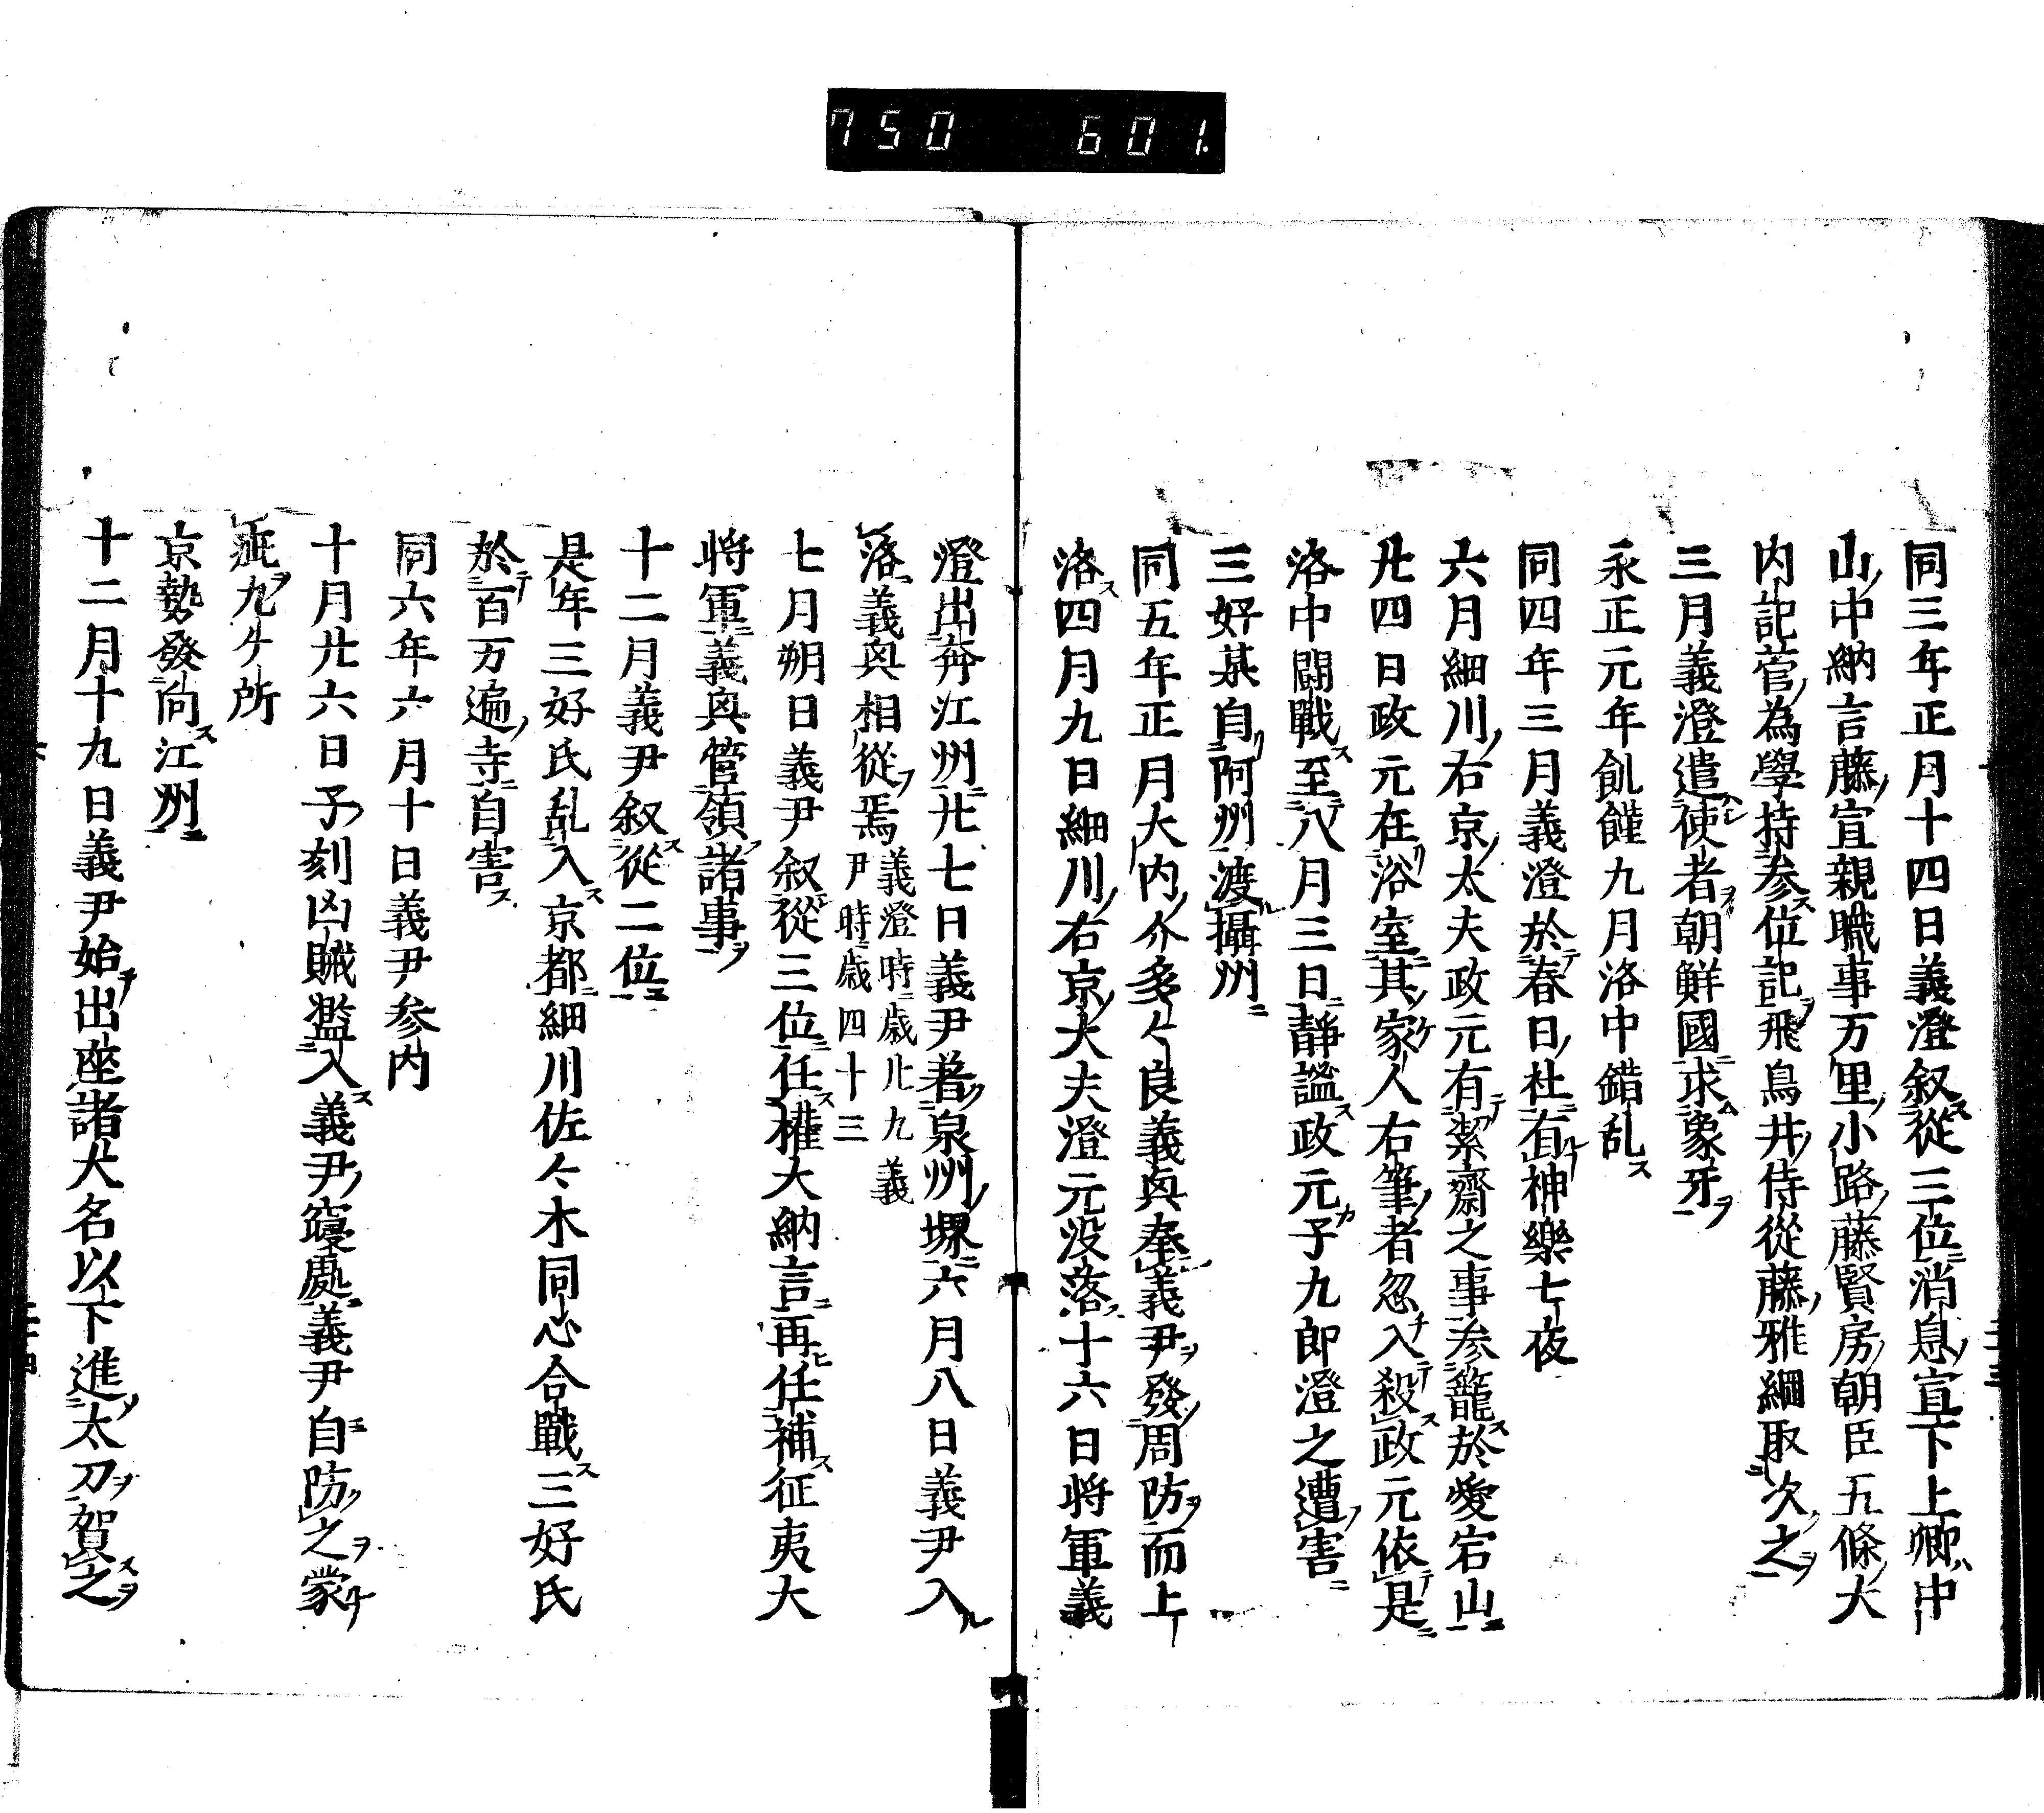 750 601.
同三年正月十四日義澄叙從三位消息宣下上卿中
山中納言藤宣親職事万里小路藤賢房朝臣五條大
内記菅為學持参位記飛鳥井侍從藤雅綱取次之
三月義澄遣使者朝鮮國求象牙
永正元年飢饉九月洛中錯乱
同四年三月義澄於春日社有神樂七夜
六月細川右京太夫政元有潔齋之事参籠於愛宕山
廿四日政元在浴室其家人右筆者忽入殺政元依是
洛中鬪戰至八月三日靜謐政元子九郎澄之遭害
三好某自阿州渡攝州
同五年正月大内介多々良義興奉義尹發周防而上
洛四月九日細川右京大夫澄元没落十六日将軍義
澄出奔江州廿七日義尹著泉州堺六月八日義尹入
洛義興相從焉義澄時歳廿九義
尹時歳四十三
七月朔日義尹叙從三位任權大納言再任補征夷大
将軍義興管領諸事
十二月義尹叙從二位
是年三好氏乱入京都細川佐々木同心合戰三好氏
於百万遍寺自害
同六年六月十日義尹参内
十月廿六日子刻凶賊濫入義尹寝處義尹自防之蒙
疵九ケ所
京勢發向江州
十二月十九日義尹始出座諸大名以下進太刀賀之